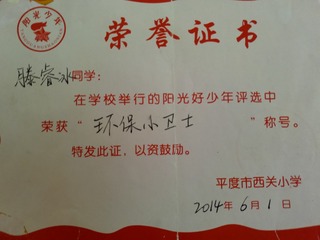 阳光少年
荣誉证书
滕睿冰同学:
在学校举行的阳光好少年评选中
荣获“环保小卫士”称号。
特发此证,以资鼓励。
平度市西关小学
2014年6月1日